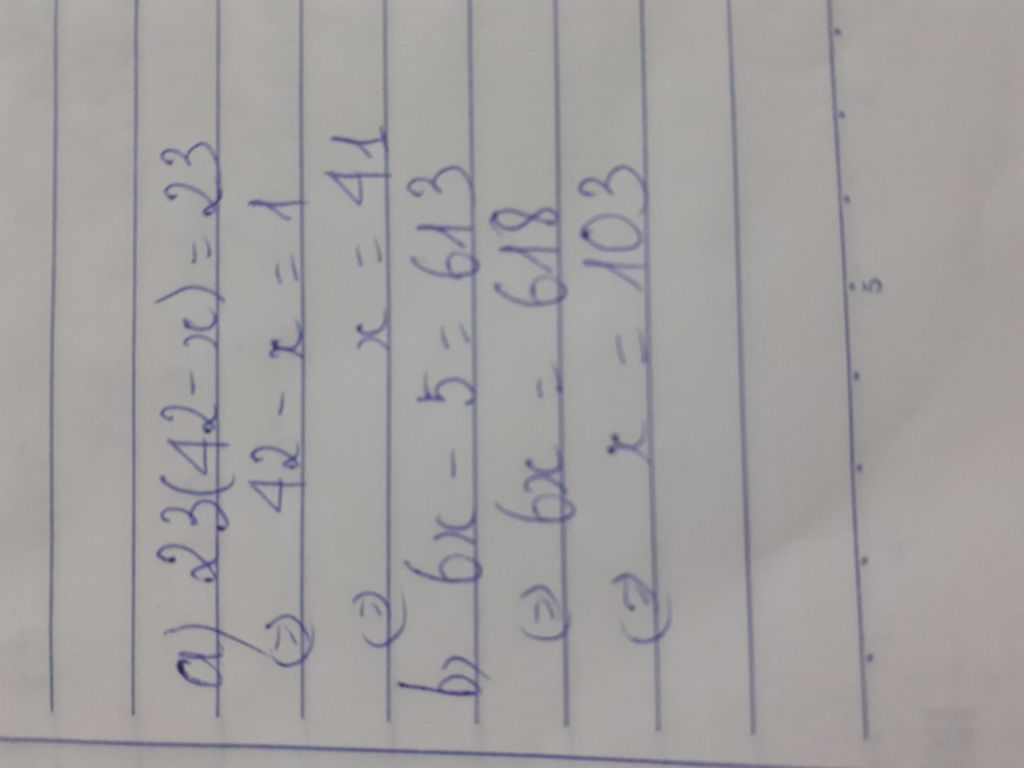 a) 23(42 - x) = 23
(=) 42 - x = 1
(=) x = 41
b) 6x - 5 = 613
(=) 6x = 618
(=) x = 103
5